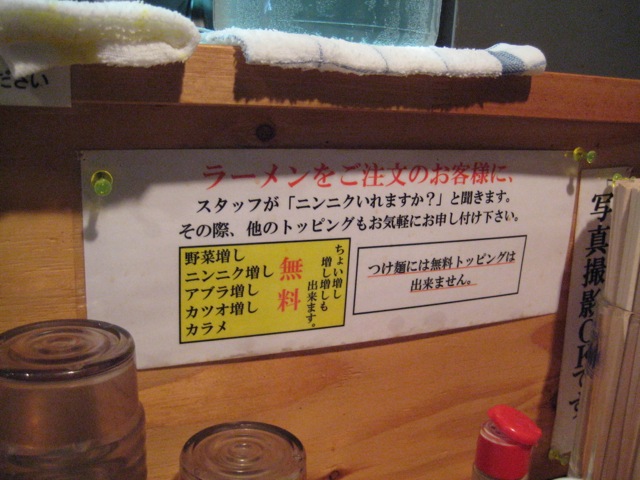 ださい
ラーメンをご注文のお客様に、
スタッフが「ニンニクいれますか?」と聞きます。
その際、他のトッピングもお気軽にお申し付け下さい。
野菜増し
ニンニク増し
アブラ増し
カツオ増し
カラメ
無料
ちょい増し
増し増しも
出来ます。
つけ麺には無料トッピングは
出来ません。
写真撮影OKです